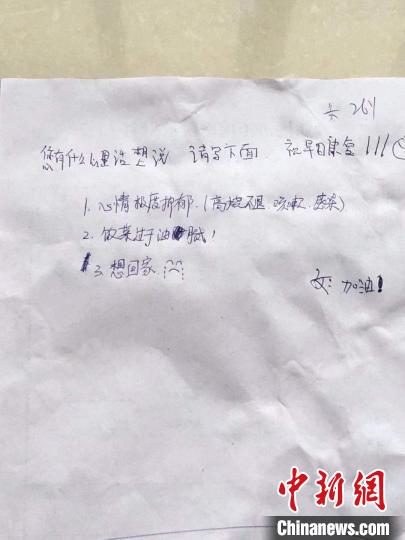 关 261
您有什么心里话想说 请写下面 祝早日康复!!!
1. 心情极度抑郁.(高烧不退、咳嗽、感染)
2. 饭菜过于油腻!
3. 想回家
女: 加油!
中新网
Chinanews.com